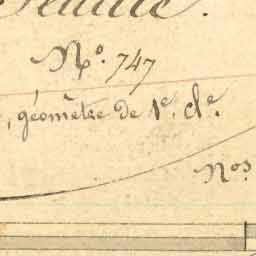 Feuille.
N°. 747
, géomètre de 1e. cle.
Nos.